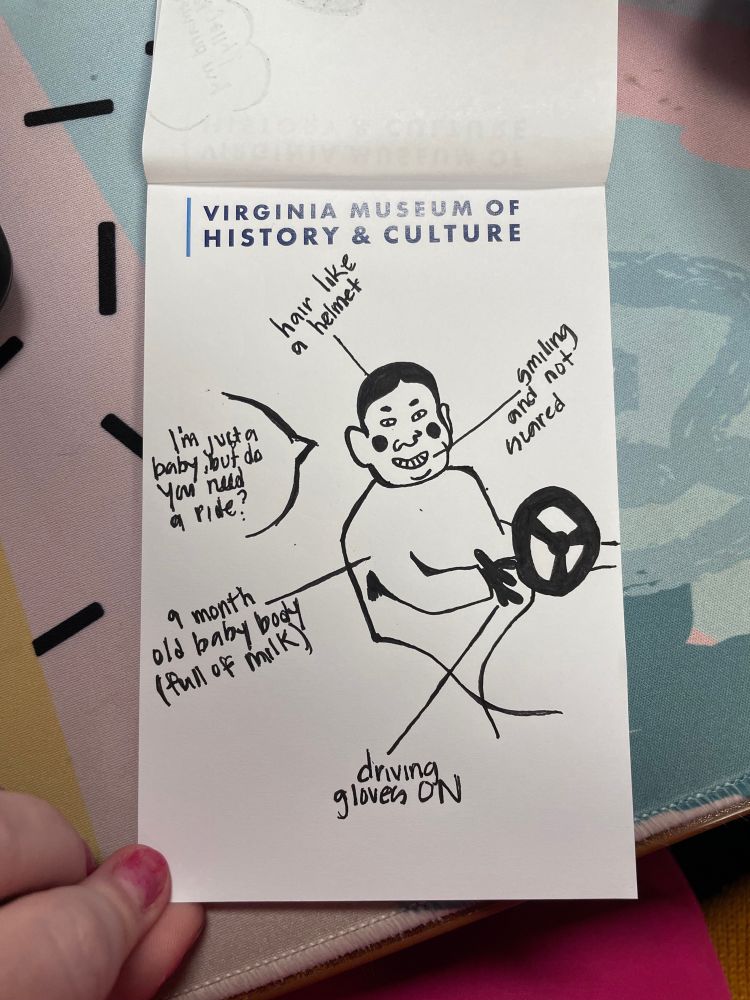 VIRGINIA MUSEUM OF
HISTORY & CULTURE
hair like
a helmet
smiling
and not
scared
I'm just a
baby, but do
you need
a ride?
9 month
old baby body
(full of milk)
driving
gloves ON